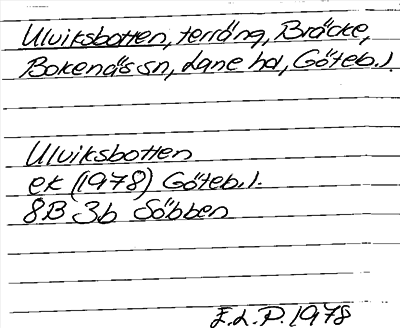 Ulviksbotten, terräng, Bräcke,
Bokenäs sn, Lane hd, Göteb.l.
Ulviksbotten
ek (1978) Göteb.l.
8B 3b Söbben
E.L.P. 1978